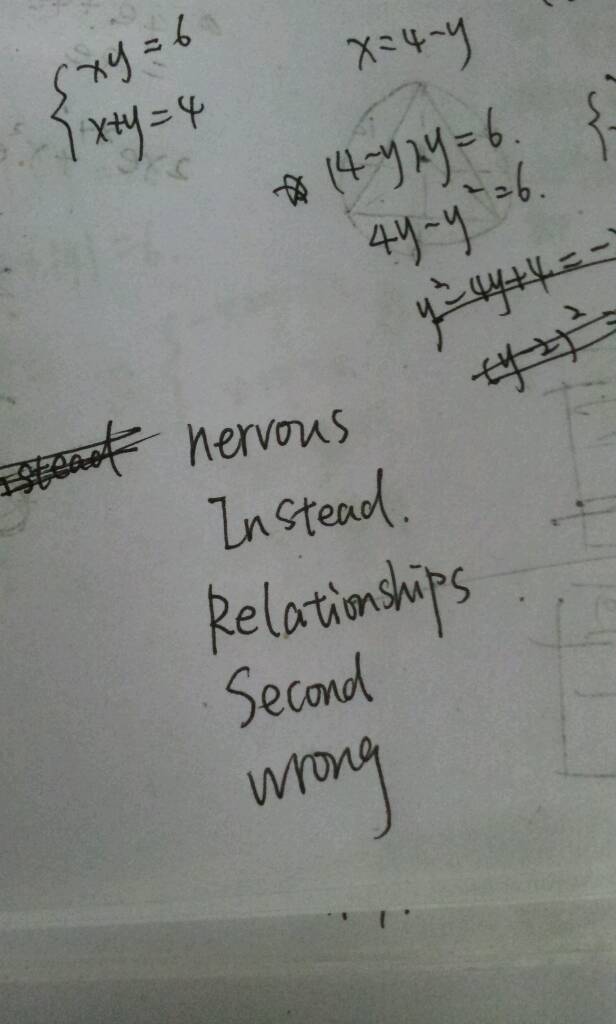 xy = 6
x+y = 4
x = 4-y
(4-y)y = 6.
4y-y² = 6.
y²-4y+4 = -
(y-2)² =
nervous
Instead.
Relationships
Second
wrong